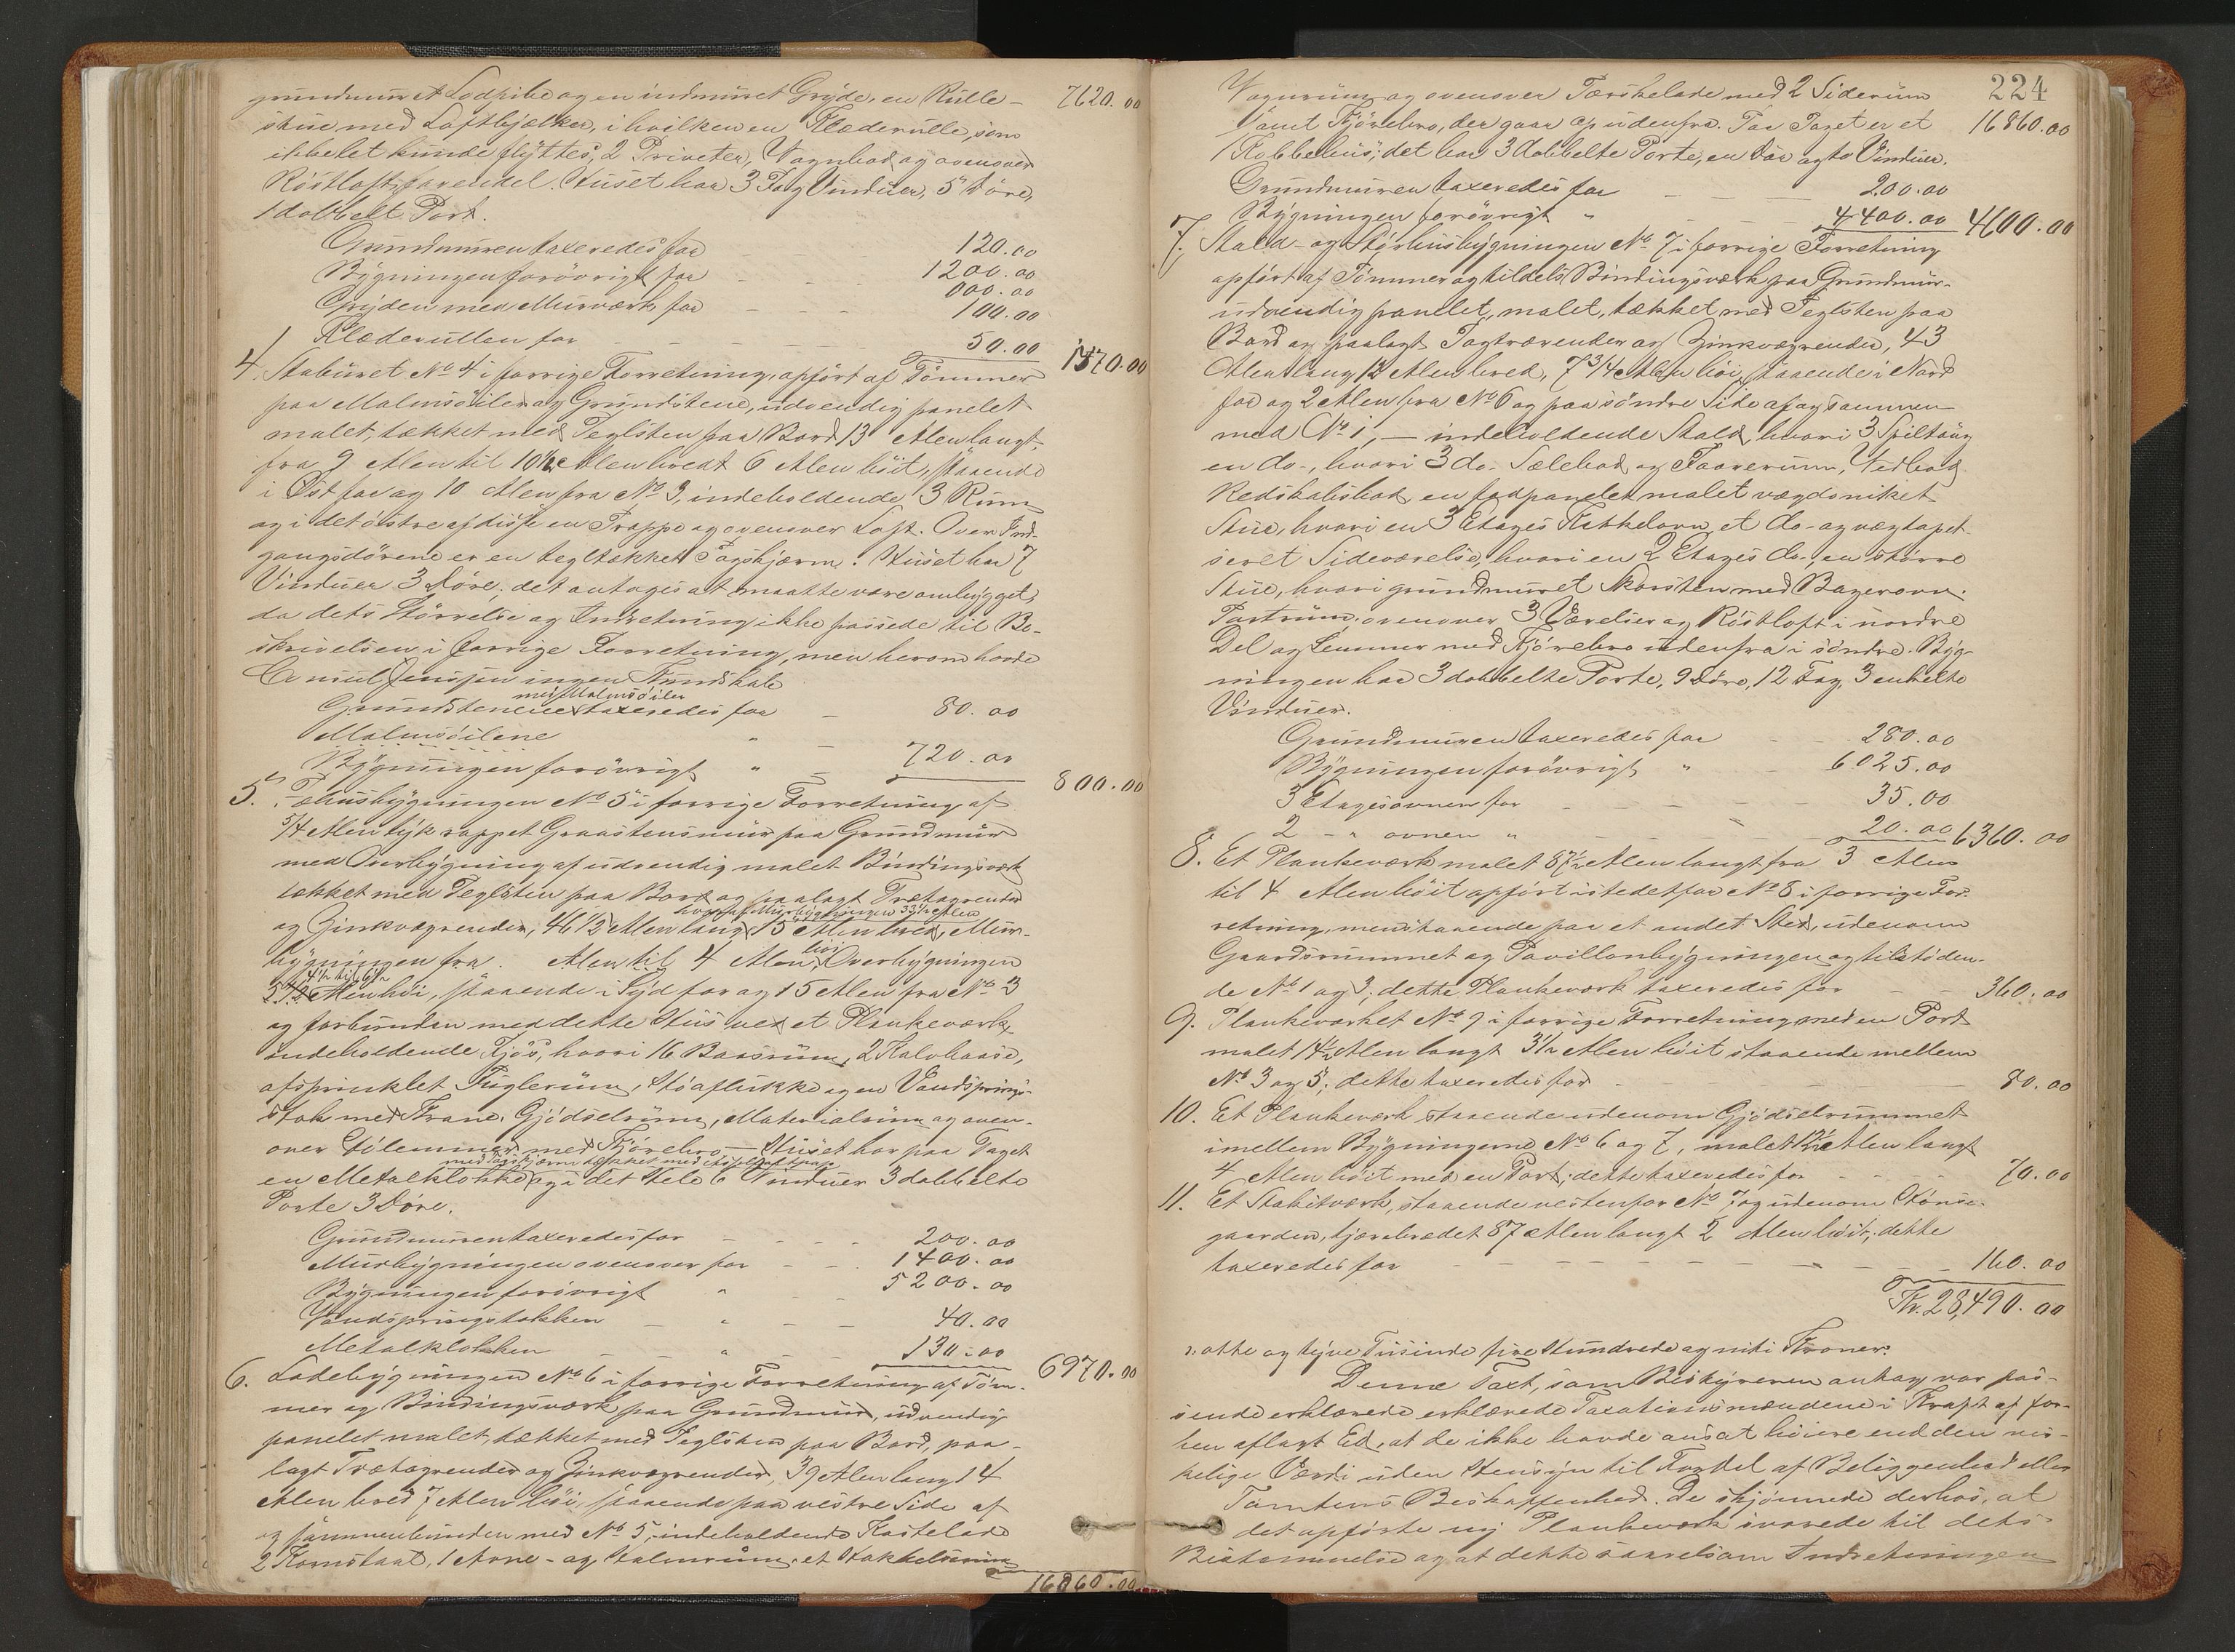 grundmuret Lodpibe og en indmuret Gryde, en Rulle- 7620.00
stue med Loftbjælker, i hvilken en Klæderulle, som
ikke let kunde flyttes, 2 Priveter, Vognbod og ovenover
Röstloft Huset har 3 Fag Vinduer, 5 Döre,
1 dobbelt Port.
Grundmuren taxeredes for 120.00
Bygningen forövrigt for 1200.00
000.00
Gryden med Murværk for 100.00
Klæderullen for 50.00 1470.00
4. Stabüret No 4 i forrige Forretning, opfört af Tömmer
paa Malmsöiler og Grundstene, udvendig panelet
malet, tækket med Teglsten paa Bord 13 Alen langt,
fra 9 Alen til 10½ Alen bredt 6 Alen höit, staaende
i Öst for og 10 Alen fra No 3, indeholdende 3 Rum
og i det östre af disse en Trappe og ovenover Loft. Over Ind-
gangsdörene er en tegltækket Tagskjærm. Huset har 7
Vinduer 3 Döre; det antoges at maatte være ombygget,
da dets Störrelse og Indretning ikke passede til Be-
skrivelsen i forrige Forretning, men herom havde
Consul Jenssen ingen Kundskab
med Malmsöiler
Grundstenene taxeredes for 80.00
Malmsöilene "
Bygningen forövrigt " 720.00
800.00
5. Fæhusbygningen No 5 i forrige Forretning af
5/4 Alen tyk rappet Graastensmür paa Grundmür
med Overbygning af udvendig malet Bindingsværk
tækket med Teglsten paa Bord og paalagt Trætagrender
hvoraf Murbygningen 33½ Alen
og Zinkvægrender, 46½ Alen lang 15 Alen bred, Mur-
bygningen fra Alen til 4 Alen höi Overbygningen
4½ til 6½
Alen höi, staaende i Syd for og 15 Alen fra No 3
og forbunden med dette Hus ved et Plankeværk,
indeholdende Fjös, hvori 16 Baasrüm, 2 Kalvbaase,
afsprinklet Fuglerüm, Stöaflukke og en Vandsprings-
stok med Krane. Gjödselrüm, Materialrüm og oven-
over Hölemmer med Kjörebro. — Huset har paa Taget
med Tagskjærm tækket med
en Metalklokke og i det Hele 6 Vinduer 3 dobbelte
Porte 3 Döre.
Grundmuren taxeredes for 200.00
Murbygningen ovenover for 1400.00
Bygningen forövrigt " 5200.00
Vandspringstokken " 40.00
Metalklokken " 130.00
6970.00
6. Ladebygningen No 6 i forrige Forretning af Töm-
mer og Bindingsværk paa Grundmür, udvendig
panelet malet, tækket med Teglsten paa Bord, paa-
lagt Trætagrender og Zinkvægrender, 39 Alen lang 14
Alen bred 7 Alen höi, staaende paa vestre Side af
og sammenbunden med No 5, indeholdende Kastelade
2 Kornstaal, 1 Avne- og Halmrüm, et Hakkelserüm
16860.00
224
Vognrüm og ovenover Tærskelade med 2 Siderüm
samt Kjörebro, der gaar op udenfra. Paa Taget er et 16860.00
Kobbelhüs; det har 3 dobbelte Porte, en Dör og to Vinduer.
Grundmuren taxeredes for 200.00
Bygningen forövrigt " 4400.00 4600.00
7. Stald- og Störhüsbygningen No 7 i forrige Forretning
opfört af Tömmer og tildels Bindingsværk paa Grundmür-
udvendig panelet, malet, tækket med Teglsten paa
Bord og paalagt Tagtrærender og Zinkvægrender, 43
Alen lang 12 Alen bred, 7¾ Alen höi, staaende i Nord
for og 2 Alen fra No 6 og paa söndre Side af og sammen-
med No 1, — indeholdende Stald, hvori 3 Spiltoug
en do., hvori 3 do. Sælebod og Faarerum, Vedbod
Redskabsbod, en fodpanelet malet
Stue, hvori en 3 Etages Kakkelovn, et do- og vægtapet-
seret Sideværelse, hvori en 2 Etages do., en större
Stue, hvori grundmuret Skorsten med Bagerovn.
ovenover 3 Værelser og Röstloft i nordre
Del og Lemmer med Kjörebro udenfra i söndre. Byg-
ningen har 3 dobbelte Porte, 9 Döre, 12 Fag, 3 enkelte
Vinduer.
Grundmuren taxeredes for 280.00
Bygningen forövrigt " 6025.00
3 Etagesovnen for 35.00
2 - " ovnen " 20.00 6360.00
8. Et Plankeværk malet 87½ Alen langt fra 3 Alen
til 4 Alen höit opfört istedetfor No 8 i forrige For-
retning, men staaende paa et andet Sted, udenom
Gaardsrummet og Pavillonbygningen og tilstöden-
de No 1 og 3; dette Plankeværk taxeredes for 360.00
9. Plankeværket No 9 i forrige Forretning med en Port
malet 14½ Alen langt 3½ Alen höit staaende mellem
No 3 og 5; dette taxeredes for 80.00
10. Et Plankeværk staaende udenom Gjödselrummet
imellem Bygningerne No 6 og 7, malet 12½ Alen langt
4 Alen höit med en Port; dette taxeredes for 70.00
11. Et Stakitværk, staaende vestenfor No 7 og udenom Hönse-
gaarden, tjærebrædet 87 Alen langt 2 Alen höit; dette
taxeredes for 160.00
Kr. 28,490.00
: otte og tyve Tusinde fire Hundrede og niti Kroner.
Denne Taxt, som Bestyreren antog var pas-
sende erklærede erklærede Taxationsmændene i Kraft af for-
hen aflagt Ed, at de ikke havde ansat höiere end den vir-
kelige Værdi uden Hensyn til Fordel af Beliggenhed eller
Tomtens Beskaffenhed. De skjönnede derhos, at
det opförte ny Plankeværk svarede til dets
Bestemmelse og at dette saavelsom Indretningen